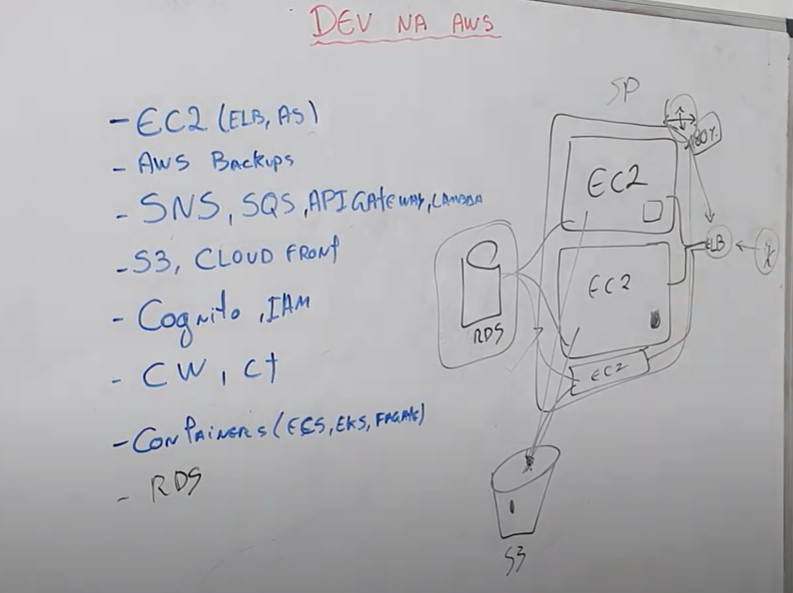 DEV NA AWS
- EC2 (ELB, AS)
- AWS Backups
- SNS, SQS, API GATEWAY, LAMBDA
- S3, CLOUD FRONT
- Cognito, IAM
- CW, CT
- CONTAINERS (ECS, EKS, FAGATE)
- RDS
SP
80%
EC2
ELB
EC2
RDS
EC2
S3